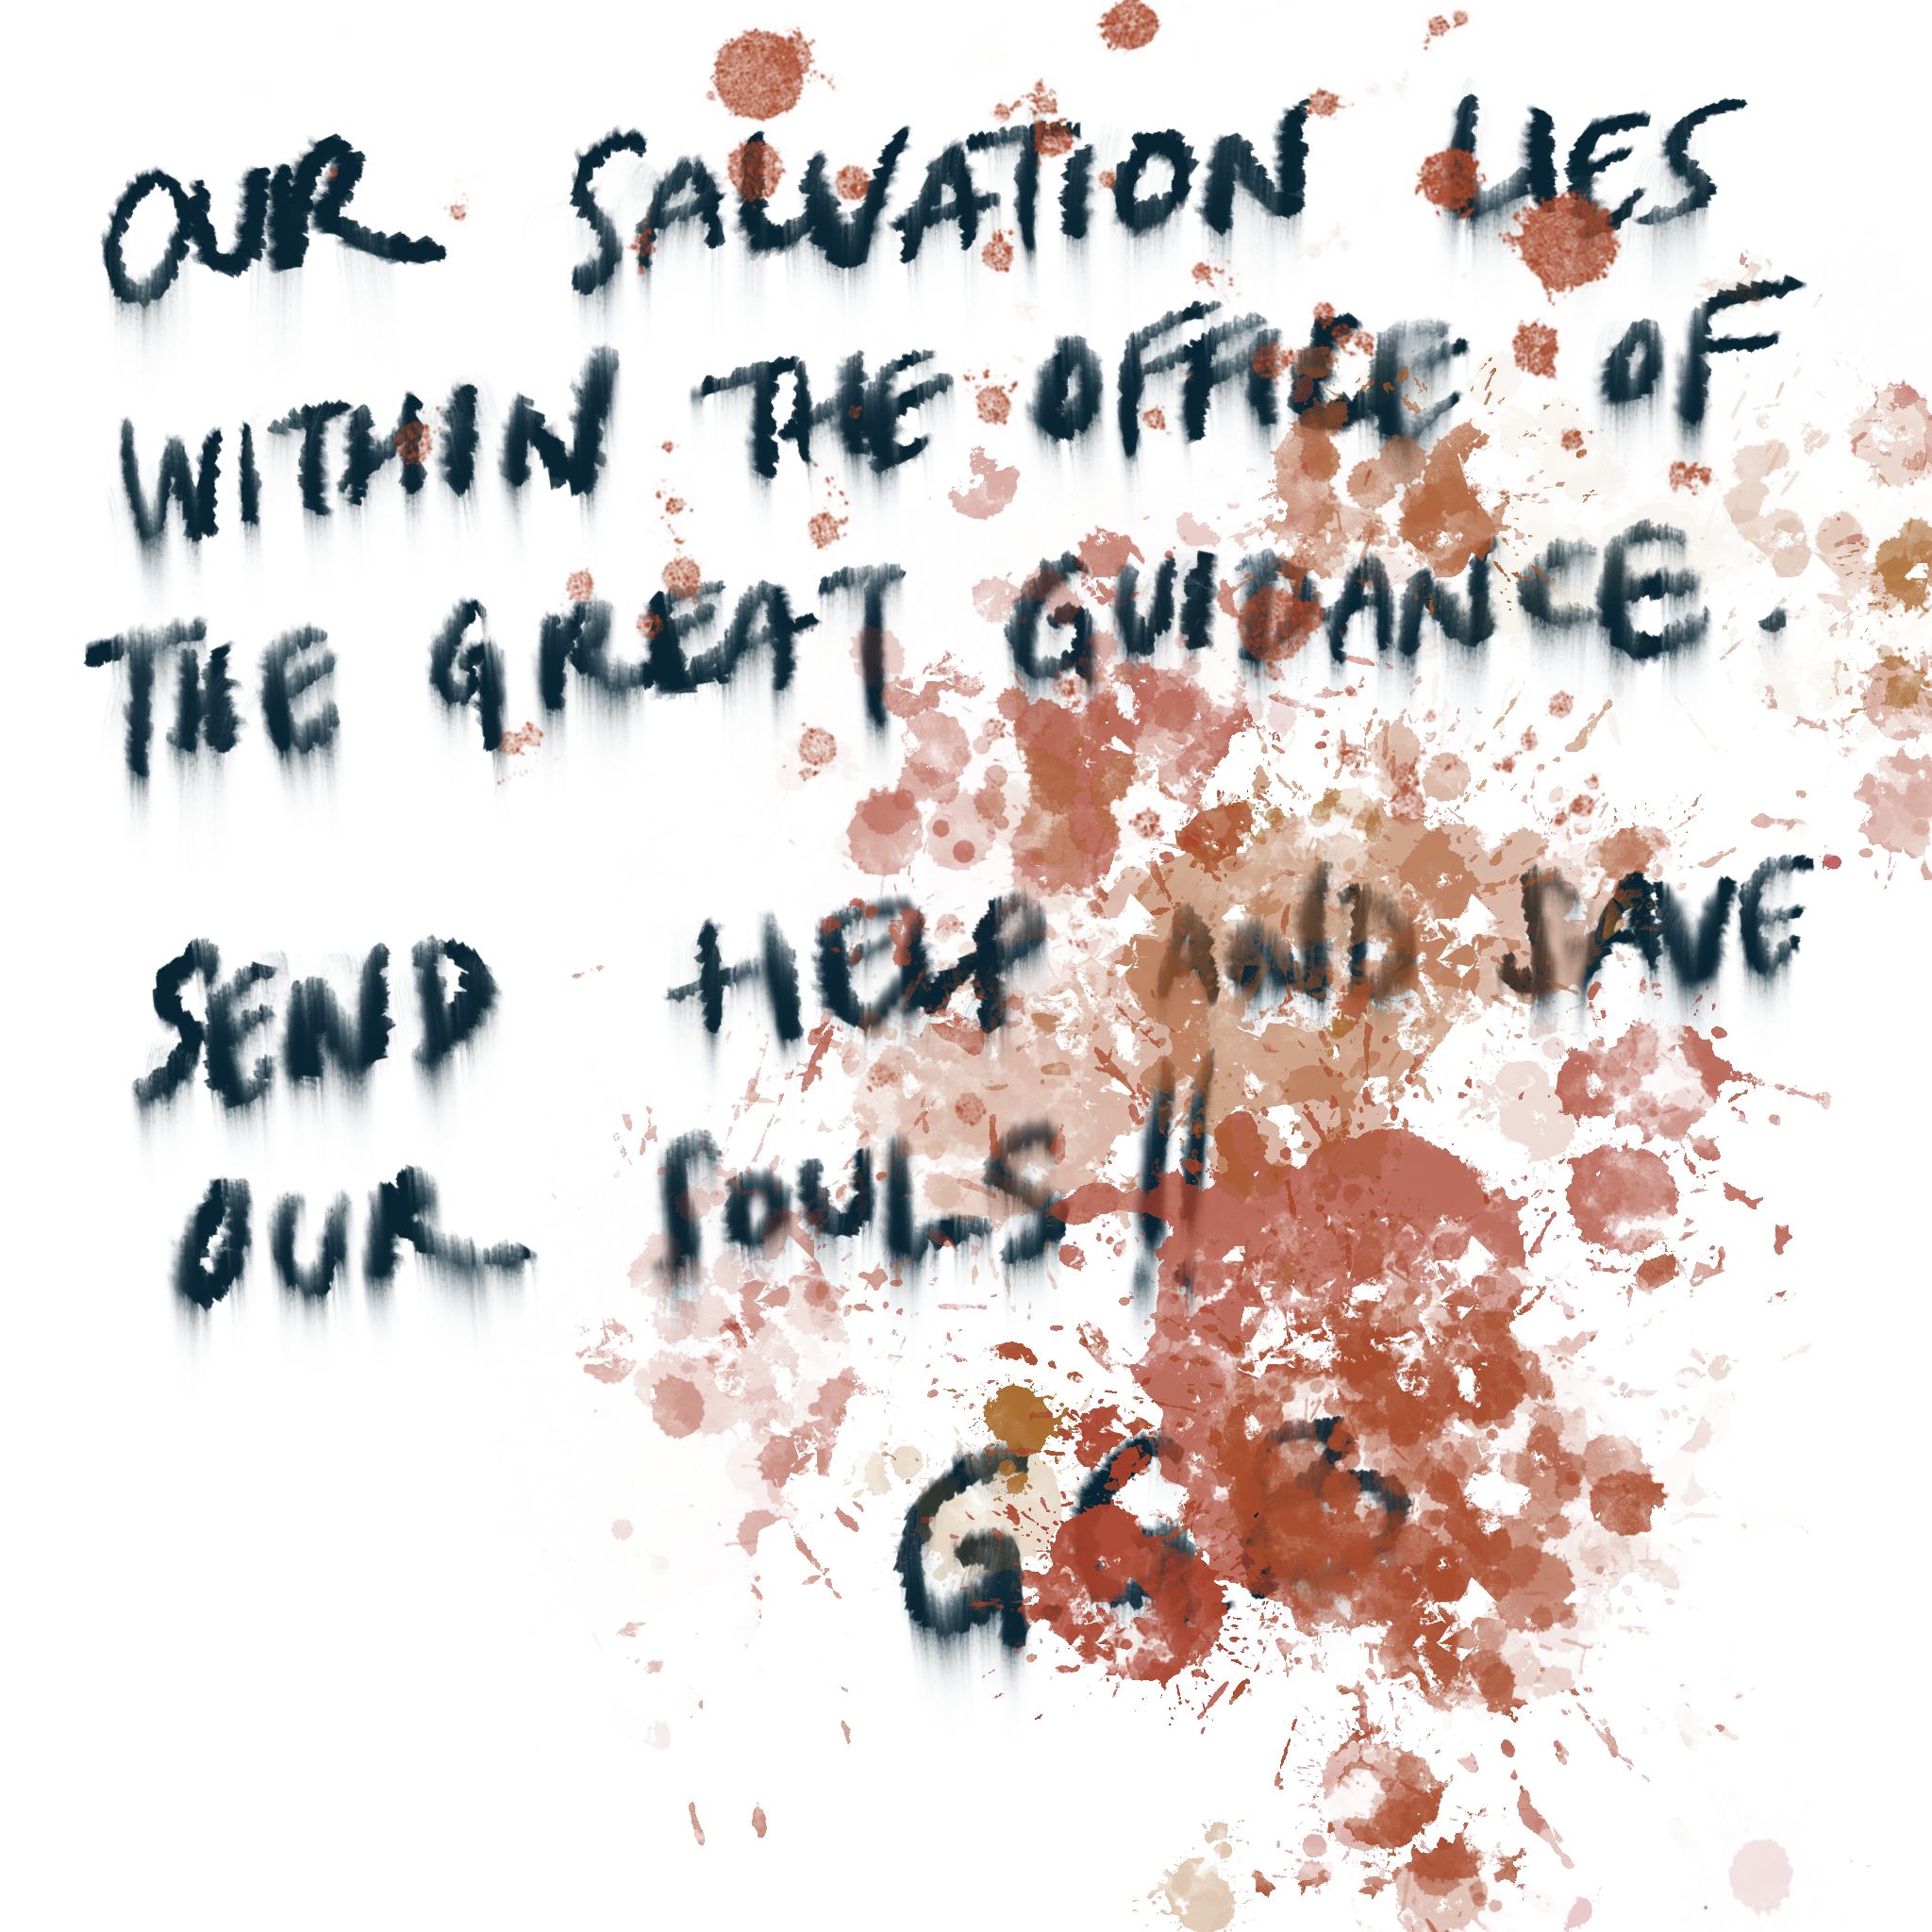 OUR SALVATION LIES
WITHIN THE OFFICE OF
THE GREAT GUIDANCE.
SEND HELP AND SAVE
OUR SOULS!!